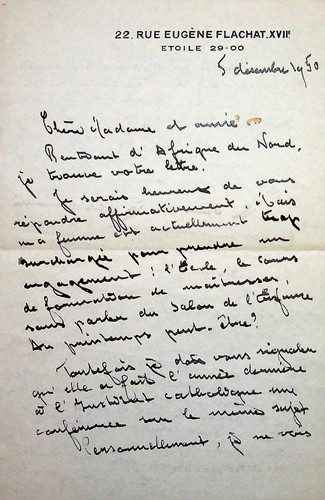 22. RUE EUGÈNE FLACHAT. XVIIᵉ
ETOILE 29-00
5 décembre 1950
Chère Madame et amie
Rentrant d'Afrique du Nord,
je trouve votre lettre.
Je serais heureux de vous
répondre affirmativement. Mais
ma femme est actuellement trop
surchargée pour prendre un
engagement : l'École, le cours
de formation de maîtresses,
sans parler du Salon de l'Enfance
Au printemps peut-être ?
Toutefois je dois vous signaler
qu'elle a fait l'année dernière
à l'Institut catholique une
conférence sur le même sujet
Personnellement, je ne vous